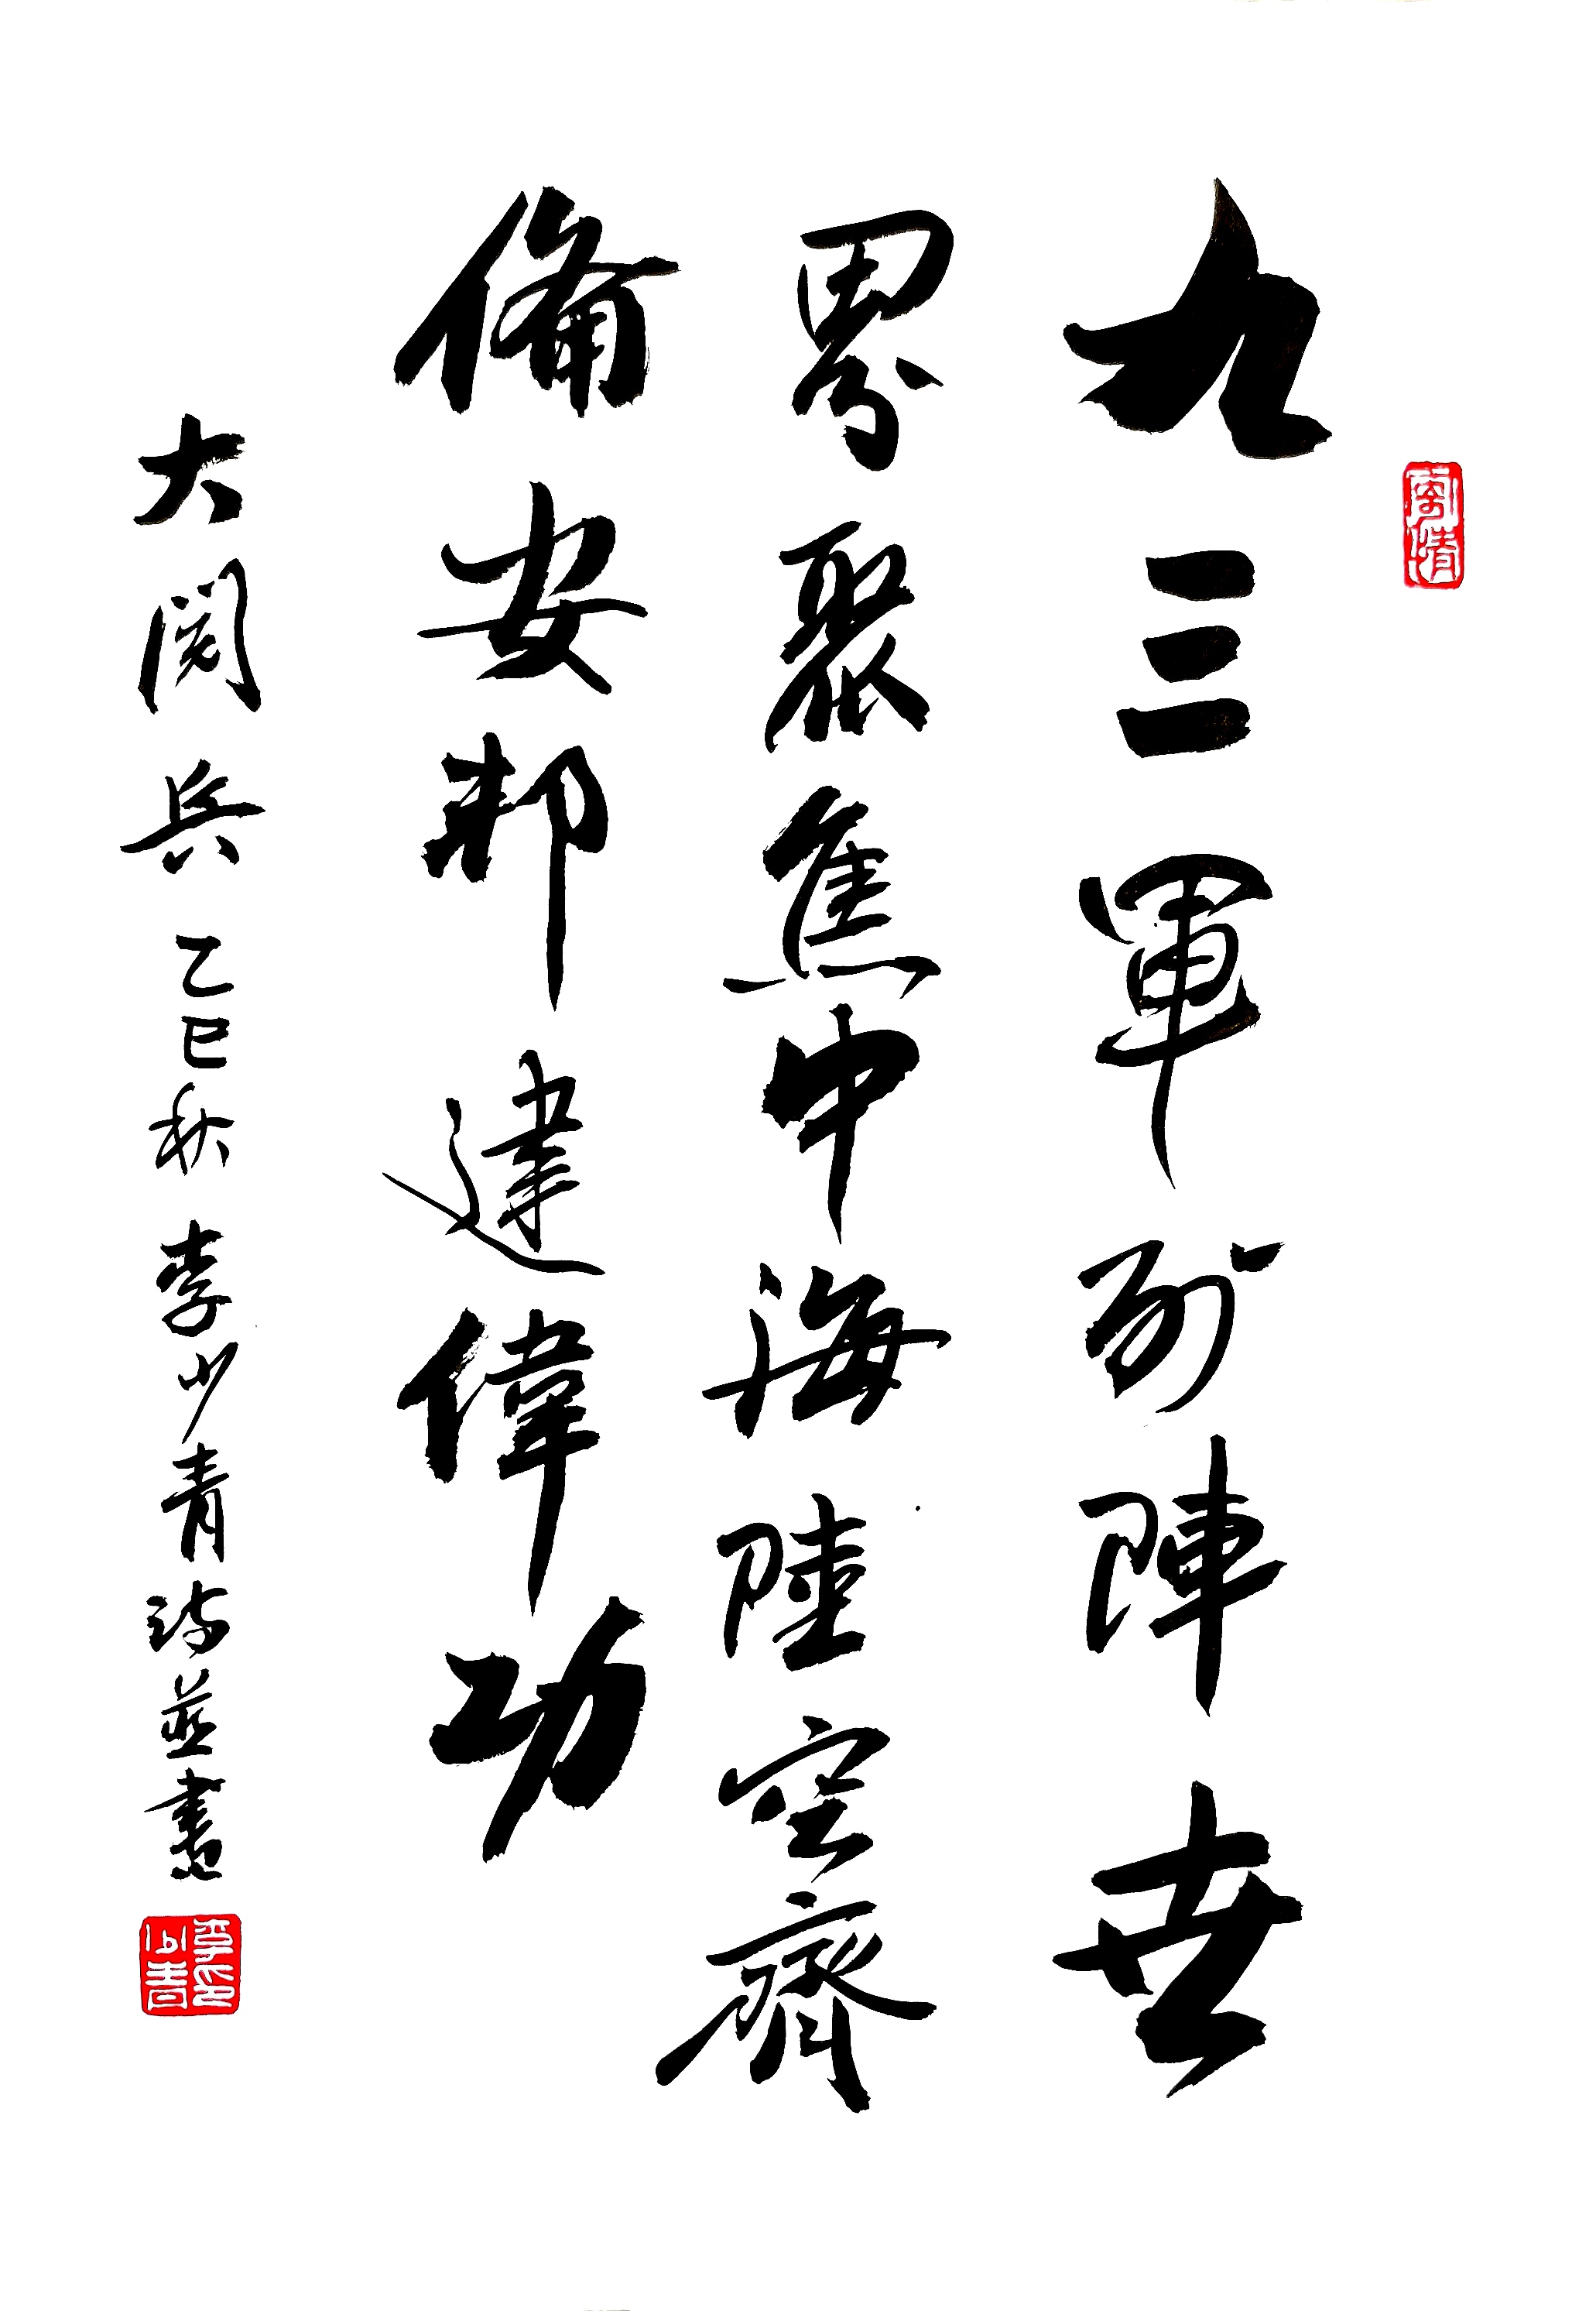 九三軍列陣世
界聚焦中海陸空齊
備安邦建偉功
大閱兵 乙巳秋 李少青詩並書
李少青印